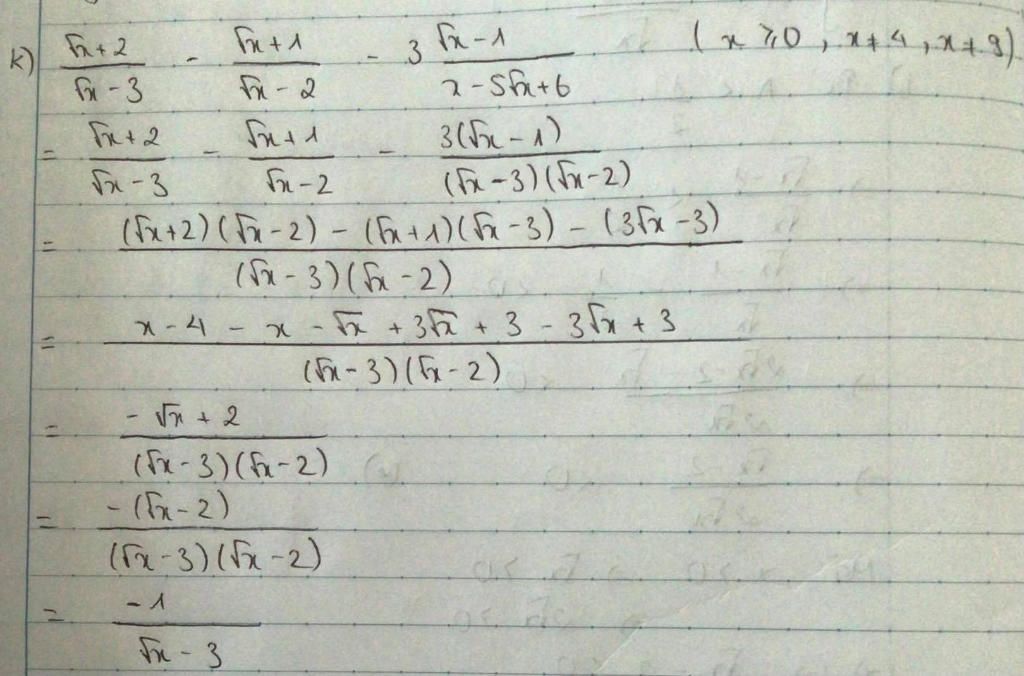 k) (√x+2)/(√x-3) - (√x+1)/(√x-2) - 3 (√x-1)/(x-5√x+6) (x ≥ 0, x ≠ 4, x ≠ 9)
= (√x+2)/(√x-3) - (√x+1)/(√x-2) - 3(√x-1)/((√x-3)(√x-2))
= ((√x+2)(√x-2) - (√x+1)(√x-3) - (3√x-3))/((√x-3)(√x-2))
= (x-4 - x - √x + 3√x + 3 - 3√x + 3)/((√x-3)(√x-2))
= (-√x+2)/((√x-3)(√x-2))
= (-(√x-2))/((√x-3)(√x-2))
= (-1)/(√x-3)